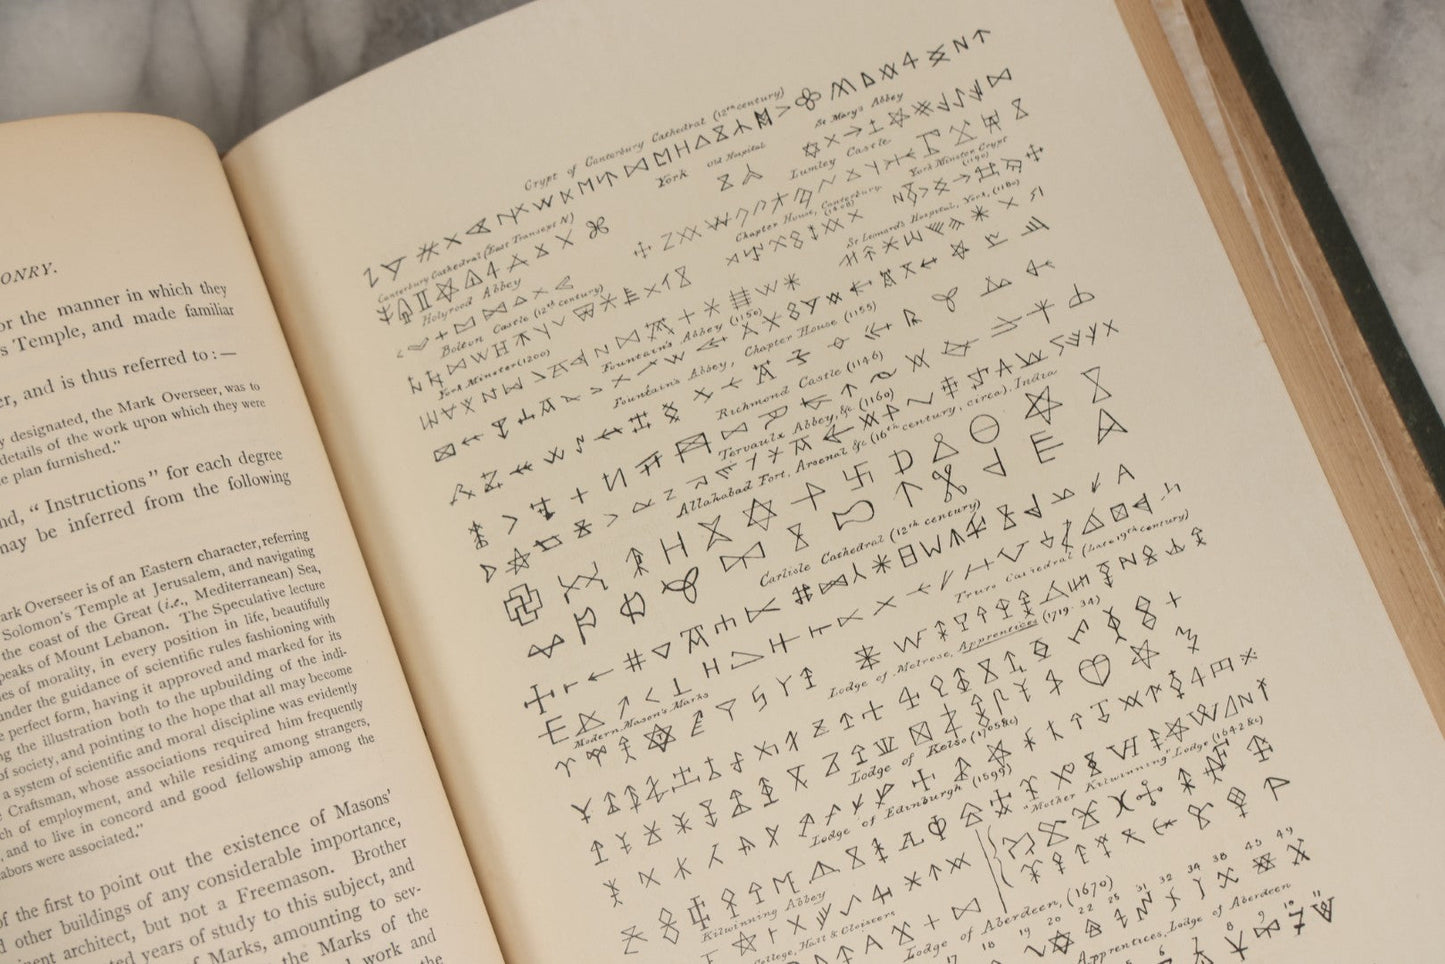 ONRY.
or the manner in which they
s Temple, and made familiar
er, and is thus referred to:—
y designated, the Mark Overseer, was to
details of the work upon which they were
e plan furnished."
nd, "Instructions" for each degree
nay be inferred from the following
ark Overseer is of an Eastern character, referring
Solomon's Temple at Jerusalem, and navigating
the coast of the Great (i.e., Mediterranean) Sea,
peaks of Mount Lebanon. The Speculative lecture
es of morality, in every position in life, beautifully
under the guidance of scientific rules fashioning with
perfect form, having it approved and marked for its
ng the illustration both to the upbuilding of the indi-
of society, and pointing to the hope that all may become
a system of scientific and moral discipline was evidently
e Craftsman, whose associations required him frequently
ch of employment, and while residing among strangers,
and to live in concord and good fellowship among the
labors were associated."
of the first to point out the existence of Masons'
d other buildings of any considerable importance,
inent architect, but not a Freemason. Brother
ted years of study to this subject, and
f Marks, amounting to sev-
the Marks of the
work and
the
Crypt of Canterbury Cathedral (12th century)
Canterbury Cathedral (East Transept N)
York
Old Hospital
St Mary's Abbey
Holyrood Abbey
Lumley Castle
Bolton Castle (12th century)
Chapter House, Canterbury
(1408)
York Minster Crypt
(1190)
York Minster (1200)
St Leonard's Hospital, York, (1180)
Fountain's Abbey (1150)
Fountain's Abbey, Chapter House (1155)
Richmond Castle (1146)
Tervaulx Abbey, &c (1160)
Allahabad Fort, Arsenal &c (16th century, circa). India
Carlisle Cathedral (12th century)
Truro Cathedral (late 19th century)
Modern Mason's Marks
Lodge of Melrose, Apprentices (1719-34)
Lodge of Kelso (1705 &c)
Lodge of Edinburgh (1599)
"Mother Kilwinning" Lodge (1642 &c)
Kilwinning Abbey
College, Hall & Cloisters
Lodge of Aberdeen, (1670)
17 18 19 20 22 25 31 32 34 38 45 49
Apprentices, Lodge of Aberdeen
7 8 9 10 11